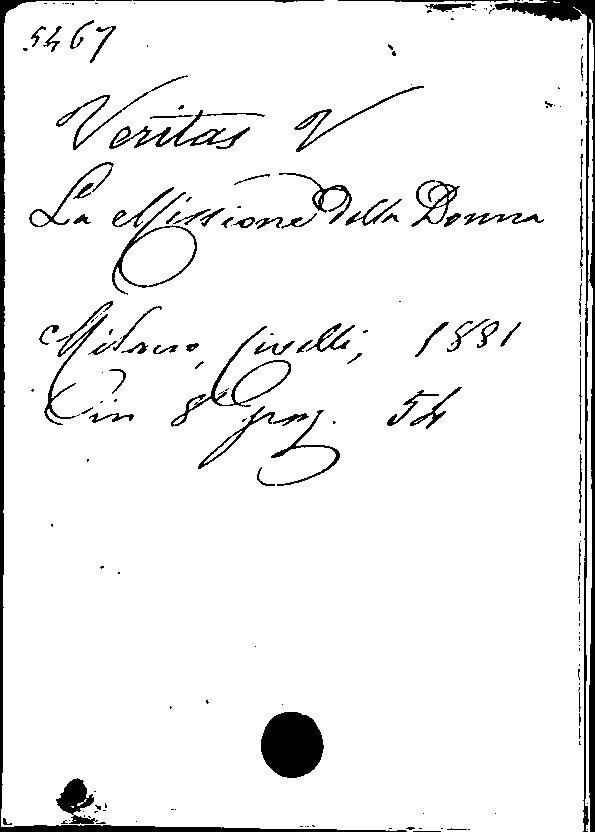 5467
Veritas V
La Missione della Donna
Milano, Civelli, 1881
in 8° pag. 54